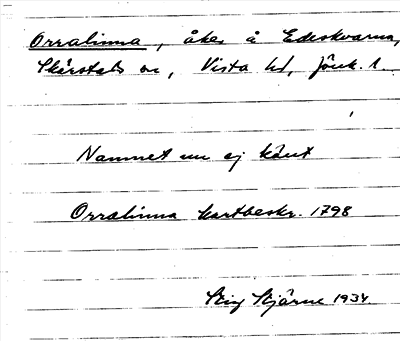 Orralinna, åker å Edeskvarna,
Skärstads sn, Vista hd, Jönk. l.
Namnet nu ej känt
Orralinna kartbeskr. 1798
Stig Skjärne 1934